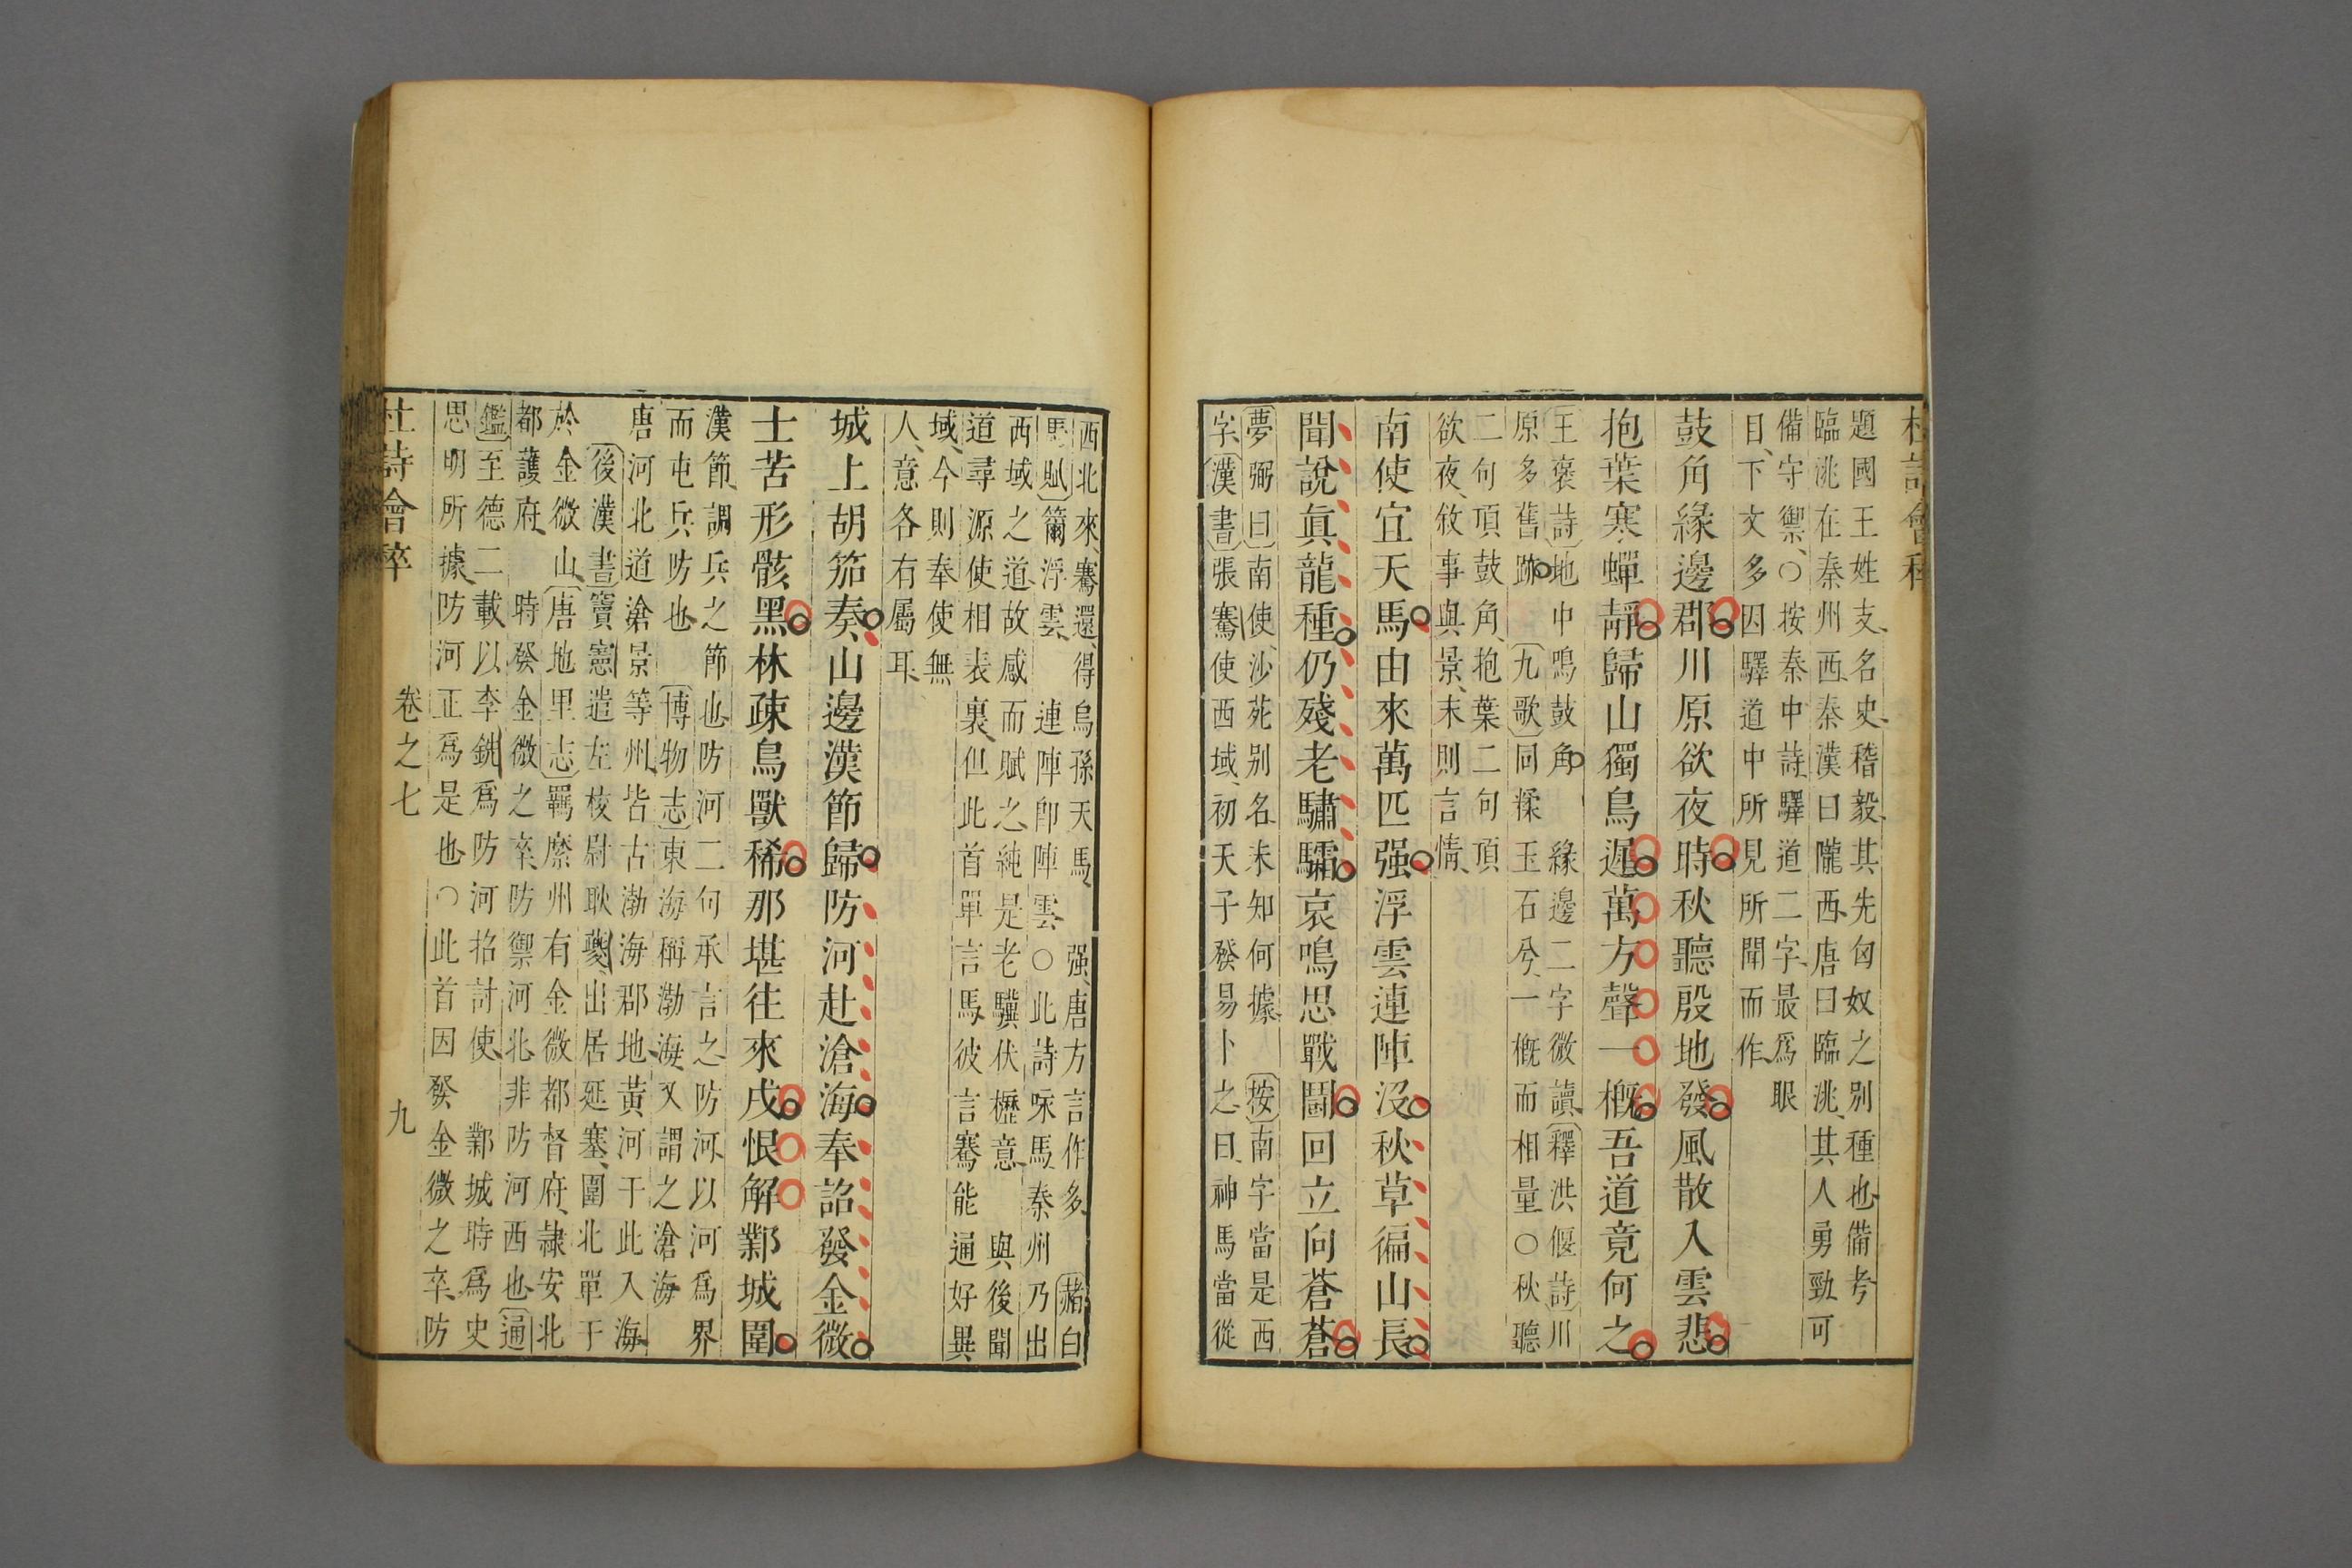 題國王姓支、名史、稽毅、其先匈奴之别種也、備考
臨洮在秦州西、秦漢曰隴西、唐曰臨洮、其人勇勁可
備守禦、○按秦中詩、驛道二字、最爲眼
目、下文多因驛道中所見所聞而作、
鼓角緣邊郡川原欲夜時秋聽殷地發風散入雲悲
抱葉寒蟬靜歸山獨鳥遲萬方聲一槪吾道竟何之
王褒詩地中鳴鼓角　緣邊二字微讀、釋洪偃詩川
原多舊跡　九歌同揉玉石兮、一槪而相量○秋聽
二句頂鼓角、抱葉二句頂
欲夜、敘事與景、末則言情、
南使宜天馬由來萬匹强浮雲連陣沒秋草徧山長
聞說眞龍種仍殘老驌驦哀鳴思戰鬭回立向蒼蒼
夢弼曰南使、沙苑别名未知何據、　按南字當是西
字、漢書張騫使西域、初天子發易卜之、曰神馬當從
西北來、騫還、得烏孫天馬、　强、唐方言作多、　赭白
馬賦籋浮雲、　連陣、卽陣雲○此詩咏馬、秦州乃出
西域之道、故感而賦之、純是老驥伏櫪意、　與後聞
道尋源使相表裏、但此首單言馬、彼言騫能通好異
域、今則奉使無
人、意各有屬耳、
城上胡笳奏山邊漢節歸防河赴滄海奉詔發金微
士苦形骸黑林疎鳥獸稀那堪往來戍恨解鄴城圍
漢節、調兵之節也、防河二句承言之、防河、以河爲界
而屯兵防也、　博物志東海稱渤海、又謂之滄海、
唐河北道滄景等州、皆古渤海郡地、黃河于此入海、
後漢書竇憲遣左校尉耿夔、出居延塞、圍北單于
於金微山、唐地里志羈縻州有金微都督府、隷安北
都護府、　時發金微之卒、防禦河北、非防河西也、通
鑑至德二載以李銑爲防河招討使、　鄴城時爲史
思明所據、防河正爲是也○此首因發金微之卒、防
杜詩會稡　卷之七　九